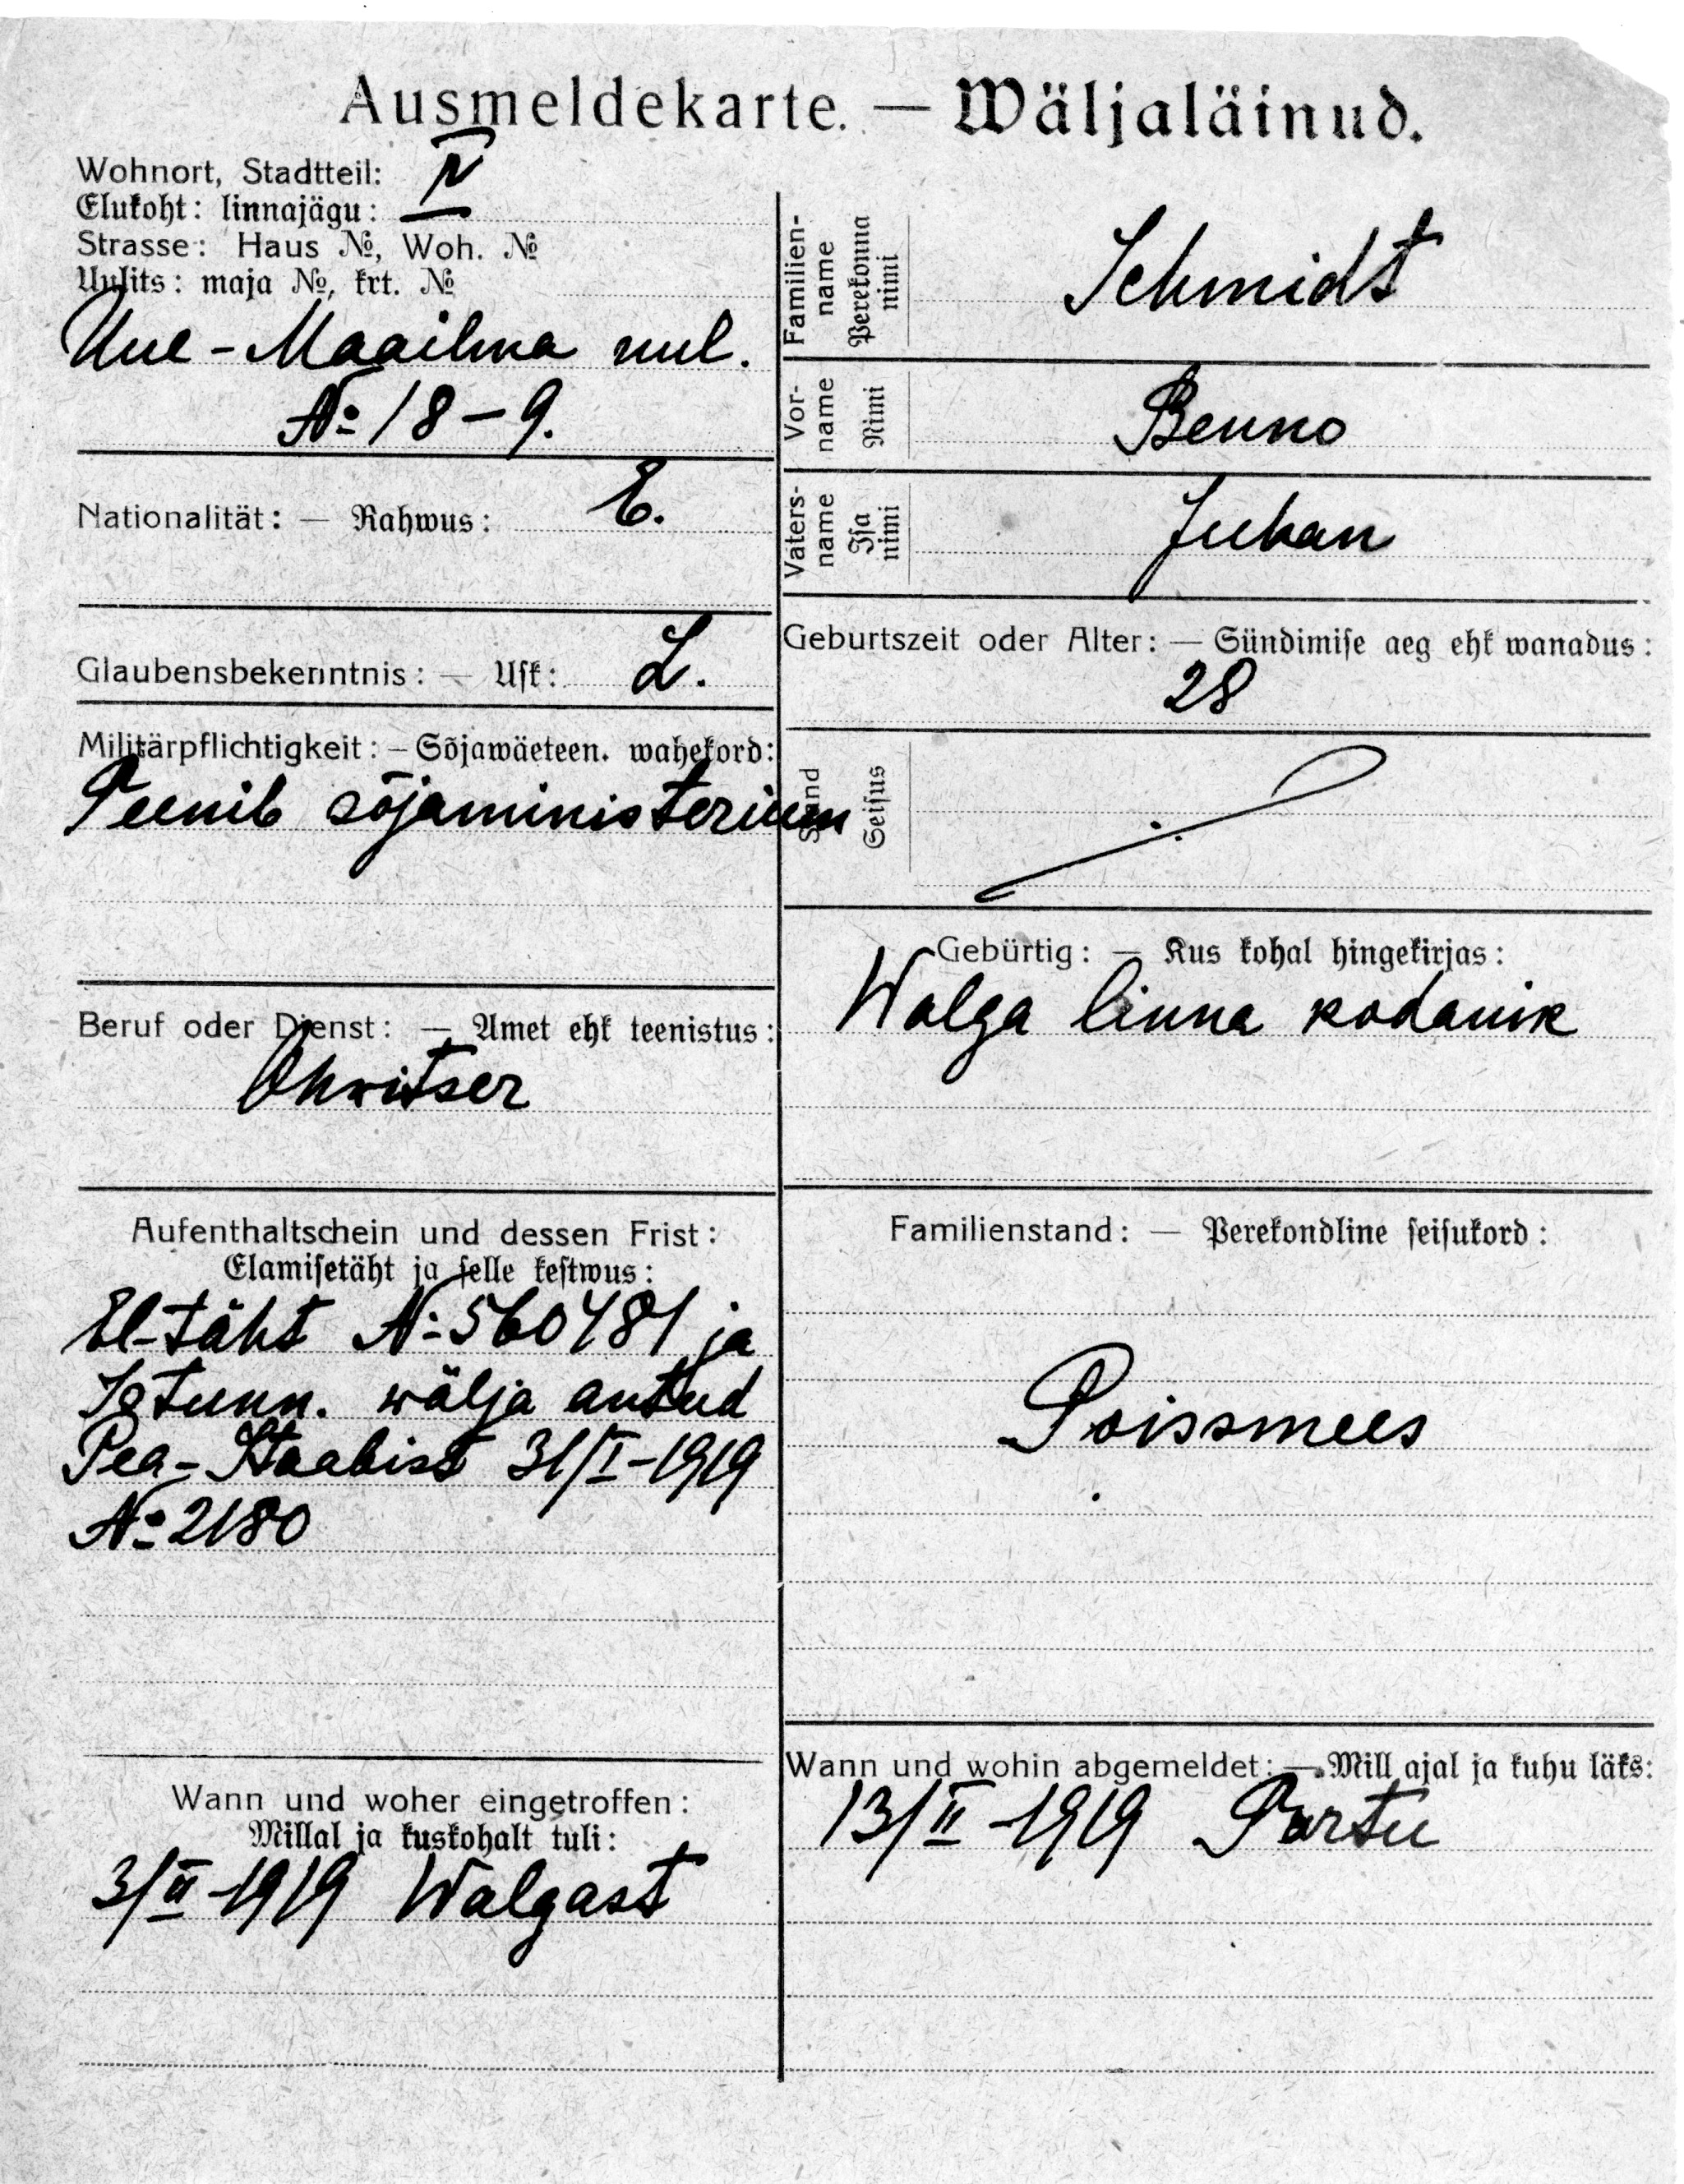 Ausmeldekarte. — Wäljaläinud.
Wohnort, Stadtteil: IV
Elukoht: linnajägu:
Strasse: Haus №, Woh. №
Uulits: maja №, krt. №
Uue-Maailma uul.
№ 18-9.
Nationalität: — Rahwus: E.
Glaubensbekenntnis: — Usk: L.
Militärpflichtigkeit: — Sõjawäeteen. wahekord:
Teenib sõjaministerium
Beruf oder Dienst: — Amet ehk teenistus:
Ohwitser
Aufenthaltschein und dessen Frist:
Elamisetäht ja selle kestwus:
El-täht № 560481 ja
Istunn. wälja antud
Pea-Staabist 31/I-1919
№ 2180
Wann und woher eingetroffen:
Millal ja kuskohalt tuli:
3/II-1919 Walgast
Familien-name Perekonna nimi
Schmidt
Vor-name Nimi
Benno
Vaters-name Isa nimi
Juhan
Geburtszeit oder Alter: — Sündimise aeg ehk wanadus:
28
Stand Seisus
Gebürtig: — Kus kohal hingekirjas:
Walga linna kodanik
Familienstand: — Perekondline seisukord:
Poissmees
Wann und wohin abgemeldet: — Mill ajal ja kuhu läks:
13/II-1919 Tartu